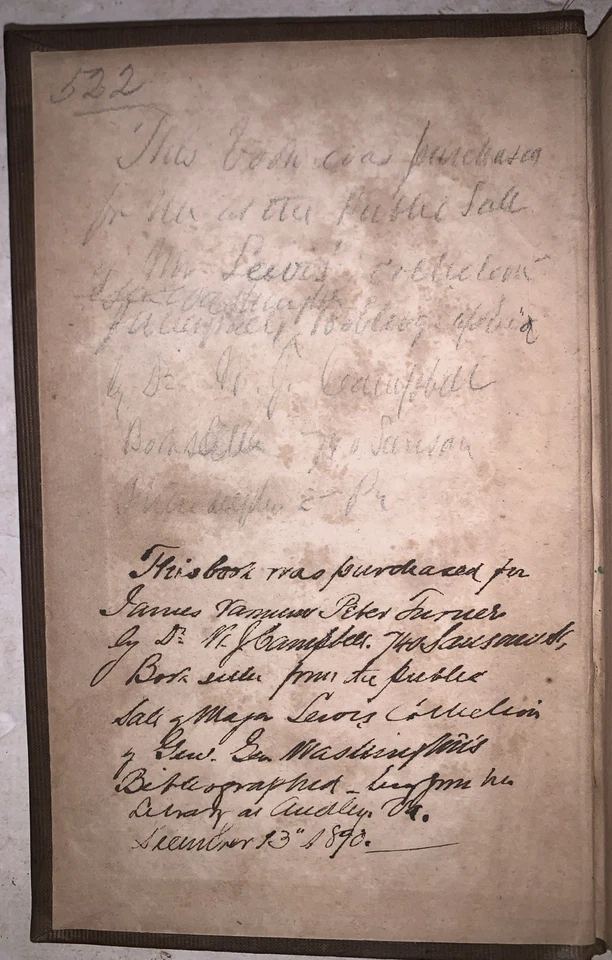 522
This book was purchased
for me at the Public Sale
of Mr Lewis' collection
by Dr W. J. Campbell
Bookseller 740 Sansom
Philadelphia Pa
This book was purchased for
James Varnum Peter Turner
by Dr W. J. Campbell. 740 Sansom St,
Book seller from the public
Sale of Major Lewis Collection
of Genl. Geo Washington's
from his
Library at Audley. Va.
December 13" 1890.